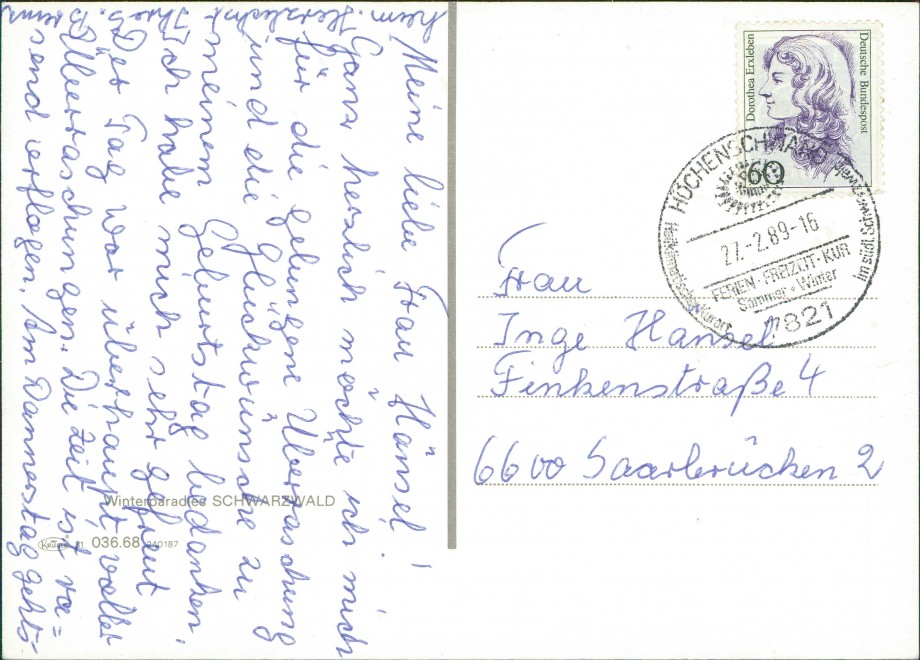 Meine liebe Frau Hänsel!
Ganz herzlich möchte ich mich
für die gelungene Überraschung
und die Glückwünsche zu
meinem Geburtstag bedanken.
Ich habe mich sehr gefreut
Der Tag war überhaupt voller
Überraschungen. Die Zeit ist ra=
send verflogen. Am Donnerstag gehts
heim. Herzlichst
Ihre
Winterparadies SCHWARZWALD
Krüger
036.68
240187
Deutsche Bundespost
Dorothea Erxleben
60
HÖCHENSCHWAND
27.-2.89-16
FERIEN·FREIZEIT·KUR
Sommer + Winter
7821
Heilklimatischer Kurort
im südl. Schwarzwald
Frau
Inge Hänsel
Finkenstraße 4
6600 Saarbrücken 2